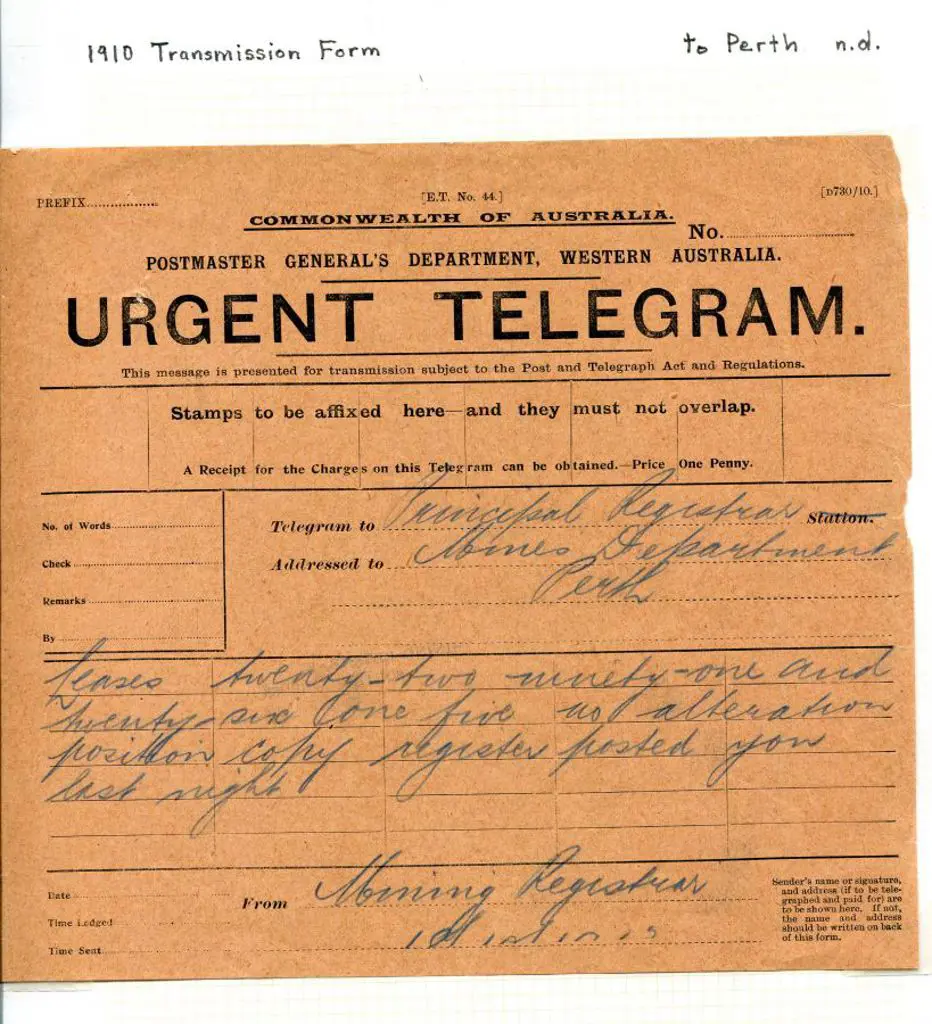 1910 Transmission Form to Perth n.d.
PREFIX
[E.T. No. 44.]
[D730/10.]
COMMONWEALTH OF AUSTRALIA.
No.
POSTMASTER GENERAL'S DEPARTMENT, WESTERN AUSTRALIA.
URGENT TELEGRAM.
This message is presented for transmission subject to the Post and Telegraph Act and Regulations.
Stamps to be affixed here—and they must not overlap.
A Receipt for the Charges on this Telegram can be obtained.—Price One Penny.
No. of Words
Check
Remarks
By
Telegram to Principal Registrar Station.
Addressed to Mines Department
Perth
Leases twenty-two ninety-one and
twenty-six one five no alteration
position copy register posted you
last night
Date
Time Lodged
Time Sent
From Mining Registrar
Sender's name or signature,
and address (if to be tele-
graphed and paid for) are
to be shown here. If not,
the name and address
should be written on back
of this form.